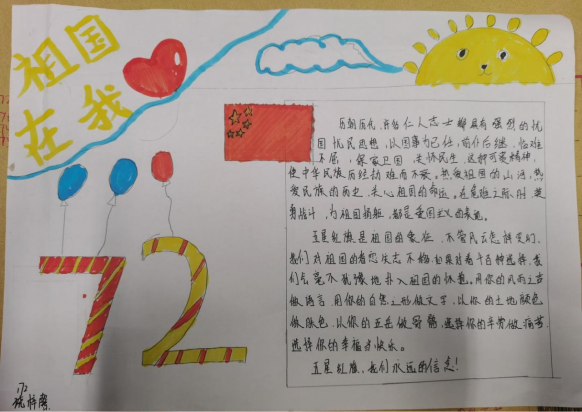 祖国
在我
72
历朝历代,许多仁人志士都具有强烈的忧
国忧民思想,以国事为己任,前仆后继,临难
不屈,保家卫国,关怀民生,这种可贵精神,
使中华民族历经劫难而不衰。热爱祖国的山河,热
爱民族的历史,关心祖国的命运。在危难之际,时
身战斗,为祖国捐躯,都是爱国主义的表现。
五星红旗是祖国的象征,不管风云怎样变幻,
我们对祖国的着恋矢志不
我们会毫不犹豫地扑入祖国的怀抱。用你的风雨之声
做语言,用你的自然之形做文字,以你的土地颜色
做肤色,以你的五岳做骨骼,选择你的辛劳做痛苦,
选择你的幸福当快乐。
五星红旗,我们永远的信念!